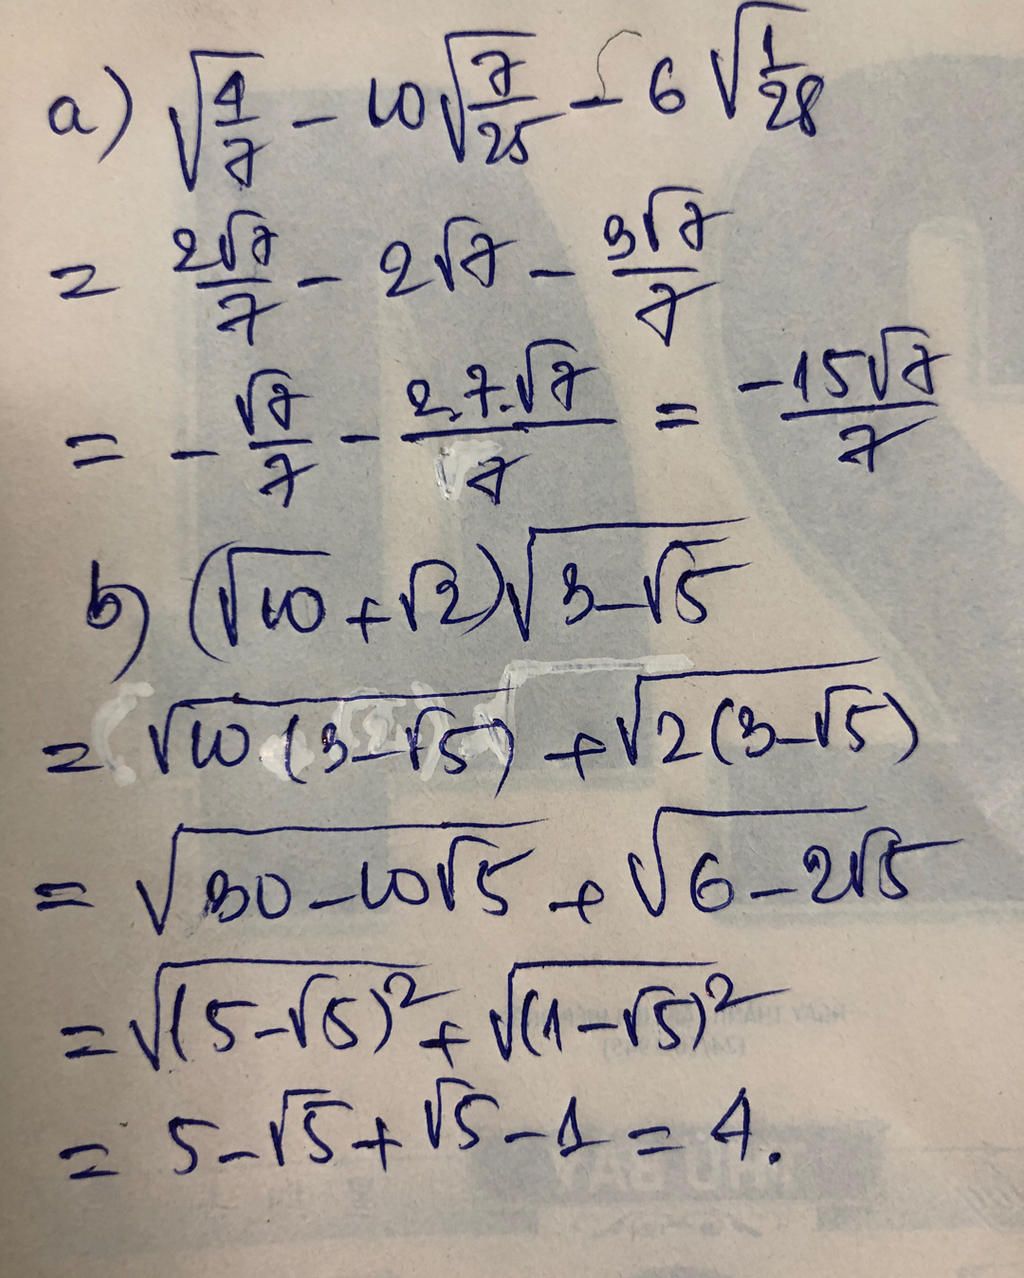 a) √(4/7) - 10√(7/25) - 6√(1/28)
= 2√7/7 - 2√7 - 3√7/7
= - √7/7 - 2.7.√7/7 = -15√7/7
b) (√10 + √2)√(3-√5)
= √(10(3-√5)) + √(2(3-√5))
= √(30-10√5) + √(6-2√5)
= √((5-√5)²) + √((1-√5)²)
= 5-√5 + √5-1 = 4.